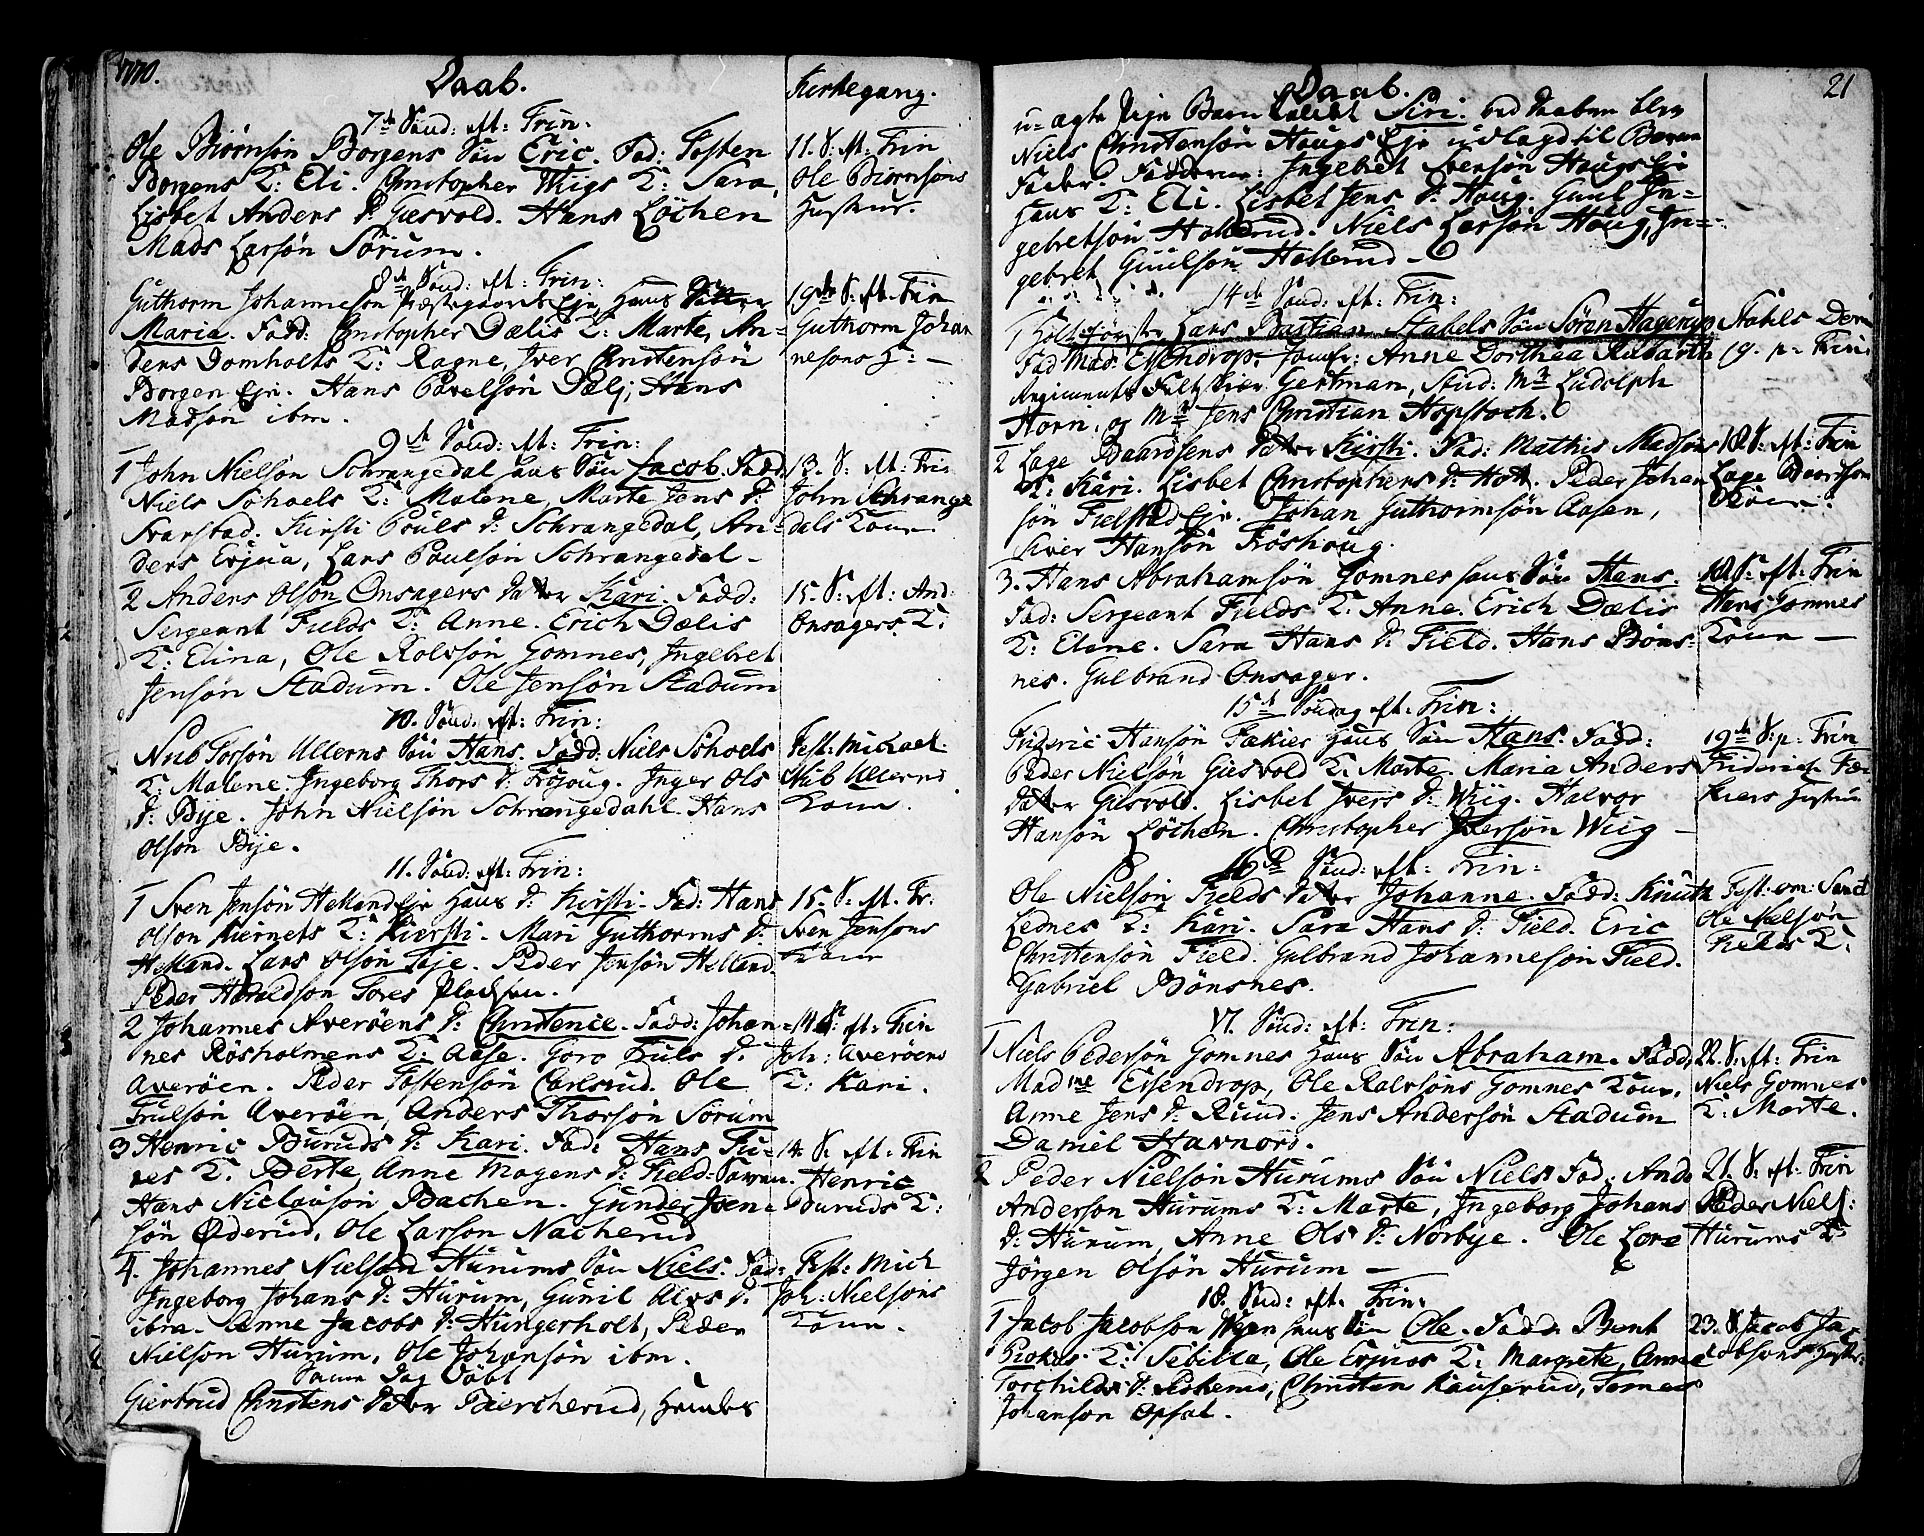 1770.
Daab.
Kirkegang.
7de Sønd: eft: Trin:
Ole Biørnsøn Borgens Søn Eric. Fad: Tosten
Borgens K: Eli. Christopher Wigs K: Sara,
Lisbet Anders D: Giesvold. Hans Løchen
Mads Larsøn Sørum.
11. S: eft: Trin
Ole Biørnsøns
Hustrue.
8de Sønd: eft: Trin:
Guthorm Johannesøn Præstegaards Eje, hans
Maria. Fadd: Christopher Dælis K: Marte, An-
ders Domholts K: Ragne, Iver Christensøn
Borgen Eje. Hans Povelsøn Dæli, Hans
Madsøn ibm.
19de S: eft: Trin
Guthorm Johan
nesøns H: -
9de Sønd: eft: Trin:
1 John Nielsøn Schrangedal hans Søn Jacob. Fadd:
Niels Schoels K: Malene, Marte Jans D:
Svarstad. Kirsti Pouls D: Schrangedal, An-
ders Erjua, Lars Poulsøn Schrangedal -
13. S: eft: Trin
John Schrange
dals Kone
2 Anders Olsøn Onsagers Datter Kari. Fadd:
Sergeant Fields K: Anne. Erich Dælis
K: Elina, Ole Rolvsøn Gomnes, Ingebret
Jensøn Stadum. Ole Jensøn Stadum
15. S: eft: And:
Onsagers K:
10. Sønd. eft: Trin:
Nub Torsøn Ullerns Søn Hans. Fadd: Niels Schoels
K: Malene. Ingeborg Thors D: Frøjoug. Inger Ols
D: Bye. John Nielsøn Schrangedahl. Hans
Olsøn Bye.
Fest: Michael.
Nub Ullerns
Kone.
11. Sønd: eft: Trin:
1 Sven Jensøn Helland Eje hans D: Kirsti. Fad: Hans
Olsøn Kiernets K: Kiersti. Mari Guthorms D:
Helland. Lars Olsøn Leje. Peder Jensøn Helland
Peder Haraldsøn Tores Pladsen.
15. S: eft. Tr:
Sven Jensøns
Kone
2 Johannes Averøens D: Christence. Fadd: Johan-
nes Røsholmens K: Aase. Goro Truls D:
Averøen. Peder Tostensøn Carlsrud. Ole
Trulsøn Averøen, Anders Thorsøn Sørum
14. S: eft: Trin
Joh: Averøens
K: Kari.
3 Henric Buruds D: Kari. Fad: Hans Tu-
res K. Berte, Anne Mogens D: Field
Hans Niclausøn Bachen. Gunder Iven-
søn Øderud, Ole Larsøn Nacherud
14. S. eft: Trin
Henric
Buruds K:
4. Johannes Nielsøn Hurums Søn Niels. Fad:
Ingeborg Johans D: Hurum, Gunil Alvs D.
ibm. Anne Jacobs D: Hungerholt, Peder
Nielsøn Hurum, Ole Johansøn ibm.
Fest: Mich
Joh: Nielsøns
Kone.
Samme Dag Døbt
Giertrud Christens Datter Biercherud, hendes
Daab.
21
u-ægte Pige Barn kaldet Siri. ved Daaben blev
Niels Christensøn Hougs Eje udlagd til Barne
Fader. Fadderne: Ingebret Svensøn Hougs Eje
hans K: Eli. Lisbet Jens D: Houg. Guul In-
gebretsøn Hallerud. Niels Larsøn Houg, In-
gebret Guulsøn Hallerud
14de Sønd: eft: Trin:
1 Holtzførster Lars Bastian Stabels Søn Søren Hagerup
Fad Mad: Eisendrop. Jomfr: Anne Dorthea Rubarth
Regiments Felt Skier Gertman, Stud: Mr Ludolph
Horn, og Mr Jens Christian Hopstoch.
Stabels
19. p. Trin:
2 Lage Baardsens Datter Kirsti. Fad: Mathis Madsøns
K: Kari. Lisbet Christophers D: Hott. Peder Johan
søn Fielstad Eje. Johan Guthormsøn Aasen,
Siver Hansøn Frøshoug.
18. S: eft: Trin
Lage Baardsøn
Kone:
3. Hans Abrahamsøn Gomnes hans Søn Hans.
Fad: Sergeant Fields K: Anne. Erich Dælis
K: Elene. Sara Hans D: Field. Hans Bøns-
nes. Gulbrand Onsager.
18. S: eft: Trin
Hans Gomnes
Kone -
15de Søndag eft: Trin:
Frideric Hansøn Fækier hans Søn Hans. Fadd:
Peder Nielsøn Giesvold K: Marte. Maria Anders
datter Giesvold. Lisbet Ivers D: Wiig. Halvor
Hansøn Løchen. Christopher Iversøn Wiig -
19de S: p: Trin
Friderich Fæ
kiers Hustrue
16de Sønd: eft: Trin:
Ole Nielsøn Fields Datter Johanne. Fadd: Knuth
Lednes K: Kari. Sara Hans D: Field. Eric
Christensøn Field. Gulbrand Johannesøn Field.
Gabriel Bønsnes.
Fest: om: Sanct
Ole Nielsøn
Fields K:
17. Sønd: eft: Trin:
1 Niels Pedersøn Gomnes hans Søn Abraham. Fadd:
Madme Eisendrop, Ole Ralvsøns Gomnes Kone,
Anne Jens D: Ruud. Jens Andersøn Stadum
Daniel Stavnord.
22. S. eft: Trin
Niels Gomnes
K: Marte.
2 Peder Nielsøn Hurums Søn Niels. Fad: And:
Andersøn Hurums K: Marte, Ingeborg Johans
D: Hurum, Anne Ols D: Norbye. Ole Lore
Jørgen Olsøn Hurum -
21. S: eft: Trin
Peder Niels:
Hurums K:
18. Sønd: eft: Trin:
1 Jacob Jacobsøn hans Søn Ole. Fadd. Bent
K: Sebilla, Ole Erjuas K: Margrete, Anne
Torchilds D: Christen Kauserud, Tarnes
Johansøn Opsal.
23. S Jacob Ja-
cobsøns Hustr: